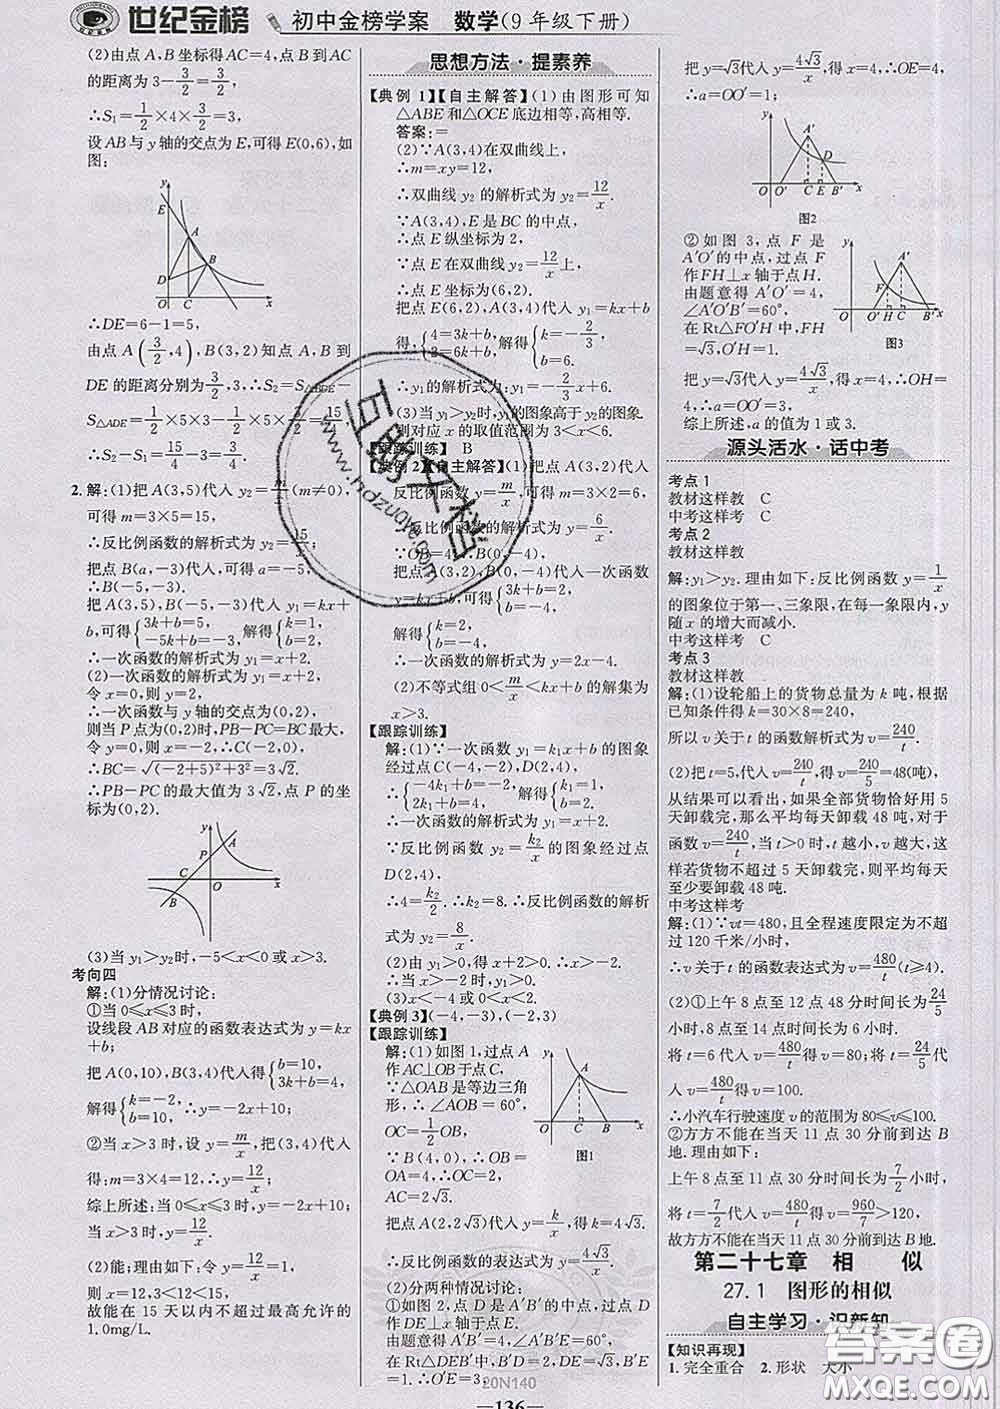 世纪金榜 初中金榜学案 数学(9年级下册)
(2)由点A,B坐标得AC=4,点B到AC
的距离为3-3/2=3/2,
∴S₁=1/2×4×3/2=3,
设AB与y轴的交点为E,可得E(0,6),如
图:
y
E
A
B
D
O
C
x
∴DE=6-1=5,
由点A(3/2,4),B(3,2)知点A,B到
DE的距离分别为3/2,3.∴S₂=S△BDE-
S△ADE=1/2×5×3-1/2×5×3/2=15/4,
∴S₂-S₁=15/4-3=3/4.
2.解:(1)把A(3,5)代入y₂=m/x(m≠0),
可得m=3×5=15,
∴反比例函数的解析式为y₂=15/x;
把点B(a,-3)代入,可得a=-5,
∴B(-5,-3).
把A(3,5),B(-5,-3)代入y₁=kx+
b,可得{3k+b=5, -5k+b=-3, 解得{k=1, b=2,
∴一次函数的解析式为y₁=x+2.
(2)一次函数的解析式为y₁=x+2,
令x=0,则y=2,
∴一次函数与y轴的交点为(0,2),
则当P点为(0,2)时,PB-PC=BC最大,
令y=0,则x=-2,∴C(-2,0),
∴BC=√((-5+2)²+3²)=3√2.
∴PB-PC的最大值为3√2,点P的坐
标为(0,2).
y
A
P
C
O
x
B
(3)当y₁>y₂时,-5<x<0或x>3.
考向四
解:(1)分情况讨论:
①当0≤x≤3时,
设线段AB对应的函数表达式为y=kx
+b;
把A(0,10),B(3,4)代入得{b=10, 3k+b=4,
解得{k=-2, b=10, ∴y=-2x+10;
②当x>3时,设y=m/x,把(3,4)代入
得:m=3×4=12,∴y=12/x;
综上所述:当0≤x≤3时,y=-2x+10;
当x>3时,y=12/x.
(2)能;理由如下:令y=12/x=1,
则x=12,3<12<15,
故能在15天以内不超过最高允许的
1.0mg/L.
思想方法·提素养
【典例1】【自主解答】(1)由图形可知
△ABE和△OCE底边相等,高相等.
答案:=
(2)∵A(3,4)在双曲线上,
∴m=xy=12,
∴双曲线y₂的解析式为y₂=12/x.
∵A(3,4),E是BC的中点,
∴点E纵坐标为2,
∵点E在双曲线y₂=12/x上,
∴点E坐标为(6,2).
把点E(6,2),A(3,4)代入y₁=kx+b
得{4=3k+b, 2=6k+b, 解得{k=-2/3, b=6.
∴y₁的解析式为:y₁=-2/3x+6.
(3)当y₁>y₂时,y₁的图象高于y₂的图象,
则对应x的取值范围为3<x<6.
【跟踪训练】 B
【典例2】【自主解答】(1)把点A(3,2)代入
反比例函数y=m/x,可得m=3×2=6,
∴反比例函数的解析式为y=6/x.
∵OB=4,∴B(0,-4),
把点A(3,2),B(0,-4)代入一次函数
y=kx+b,可得{3k+b=2, b=-4,
解得{k=2, b=-4,
∴一次函数的解析式为y=2x-4.
(2)不等式组0<m/x<kx+b的解集为
x>3.
【跟踪训练】
解:(1)∵一次函数y₁=k₁x+b的图象
经过点C(-4,-2),D(2,4),
∴{-4k₁+b=-2, 2k₁+b=4, 解得{k₁=1, b=2.
∴一次函数的表达式为y₁=x+2.
∵反比例函数y₂=k₂/x的图象经过点
D(2,4),
∴4=k₂/2.∴k₂=8.∴反比例函数的解析
式为y₂=8/x.
(2)由y₁>0,得x+2>0.∴x>-2.
∴当x>-2时,y₁>0.
(3)x<-4或0<x<2.
【典例3】(-4,-3),(-2,3)
【跟踪训练】
解:(1)如图1,过点A
作AC⊥OB于点C,
∵△OAB是等边三角
形,∴∠AOB=60°,
OC=1/2OB,
∵B(4,0),∴OB=
OA=4,∴OC=2,
AC=2√3.
y
A
O
C
B
x
图1
把点A(2,2√3)代入y=k/x,得k=4√3.
∴反比例函数的表达式为y=4√3/x.
(2)分两种情况讨论:
①如图2,点D是A'B'的中点,过点D
作DE⊥x轴于点E.
由题意得A'B'=4,∠A'B'E=60°,
在Rt△DEB'中,B'D=2,DE=√3,
B'E=1.∴O'E=3.
把y=√3代入y=4√3/x,得x=4,∴OE=4,
∴a=OO'=1;
y
A'
D
O
O'
C
E
B'
x
图2
②如图3,点F是
A'O'的中点,过点F
作FH⊥x轴于点H.
由题意得A'O'=4,
∠A'O'B'=60°,
在Rt△FO'H中,
FH=√3,O'H=1.
y
A'
F
O
O'
H
C
B'
x
图3
把y=√3代入y=4√3/x,得x=4,∴OH=
4,∴a=OO'=3,
综上所述,a的值为1或3.
源头活水·话中考
考点1
教材这样教 C
中考这样考 C
考点2
教材这样教
解:y₁>y₂.理由如下:反比例函数y=1/x
的图象位于第一、三象限,在每一象限内,y
随x的增大而减小.
中考这样考 C
考点3
教材这样教
解:(1)设轮船上的货物总量为k吨,根据
已知条件得k=30×8=240,
所以v关于t的函数解析式为v=240/t.
(2)把t=5,代入v=240/t,得v=240/5=48(吨),
从结果可以看出,如果全部货物恰好用5
天卸载完,那么平均每天卸载48吨,对于
函数v=240/t,当t>0时,t越小,v越大,这
样若货物不超过5天卸载完,则平均每天
至少要卸载48吨.
中考这样考
解:(1)∵vt=480,且全程速度限定为不超
过120千米/小时,
∴v关于t的函数表达式为v=480/t(t≥4).
(2)①上午8点至12点48分时间长为24/5
小时,8点至14点时间长为6小时.
将t=6代入v=480/t得v=80;将t=24/5代
入v=480/t得v=100.
∴小汽车行驶速度v的范围为80≤v≤100.
②方方不能在当天11点30分前到达B
地.理由如下:
上午8点至11点30分时间长为7/2小时,
将t=7/2代入v=480/t得v=960/7>120,
故方方不能在当天11点30分前到达B地.
第二十七章 相 似
27.1 图形的相似
自主学习·识新知
【知识再现】
1.完全重合 2.形状 大小
20N140
—136—
互助文档
www.hdzuoye.com
答案圈
MXQE.COM